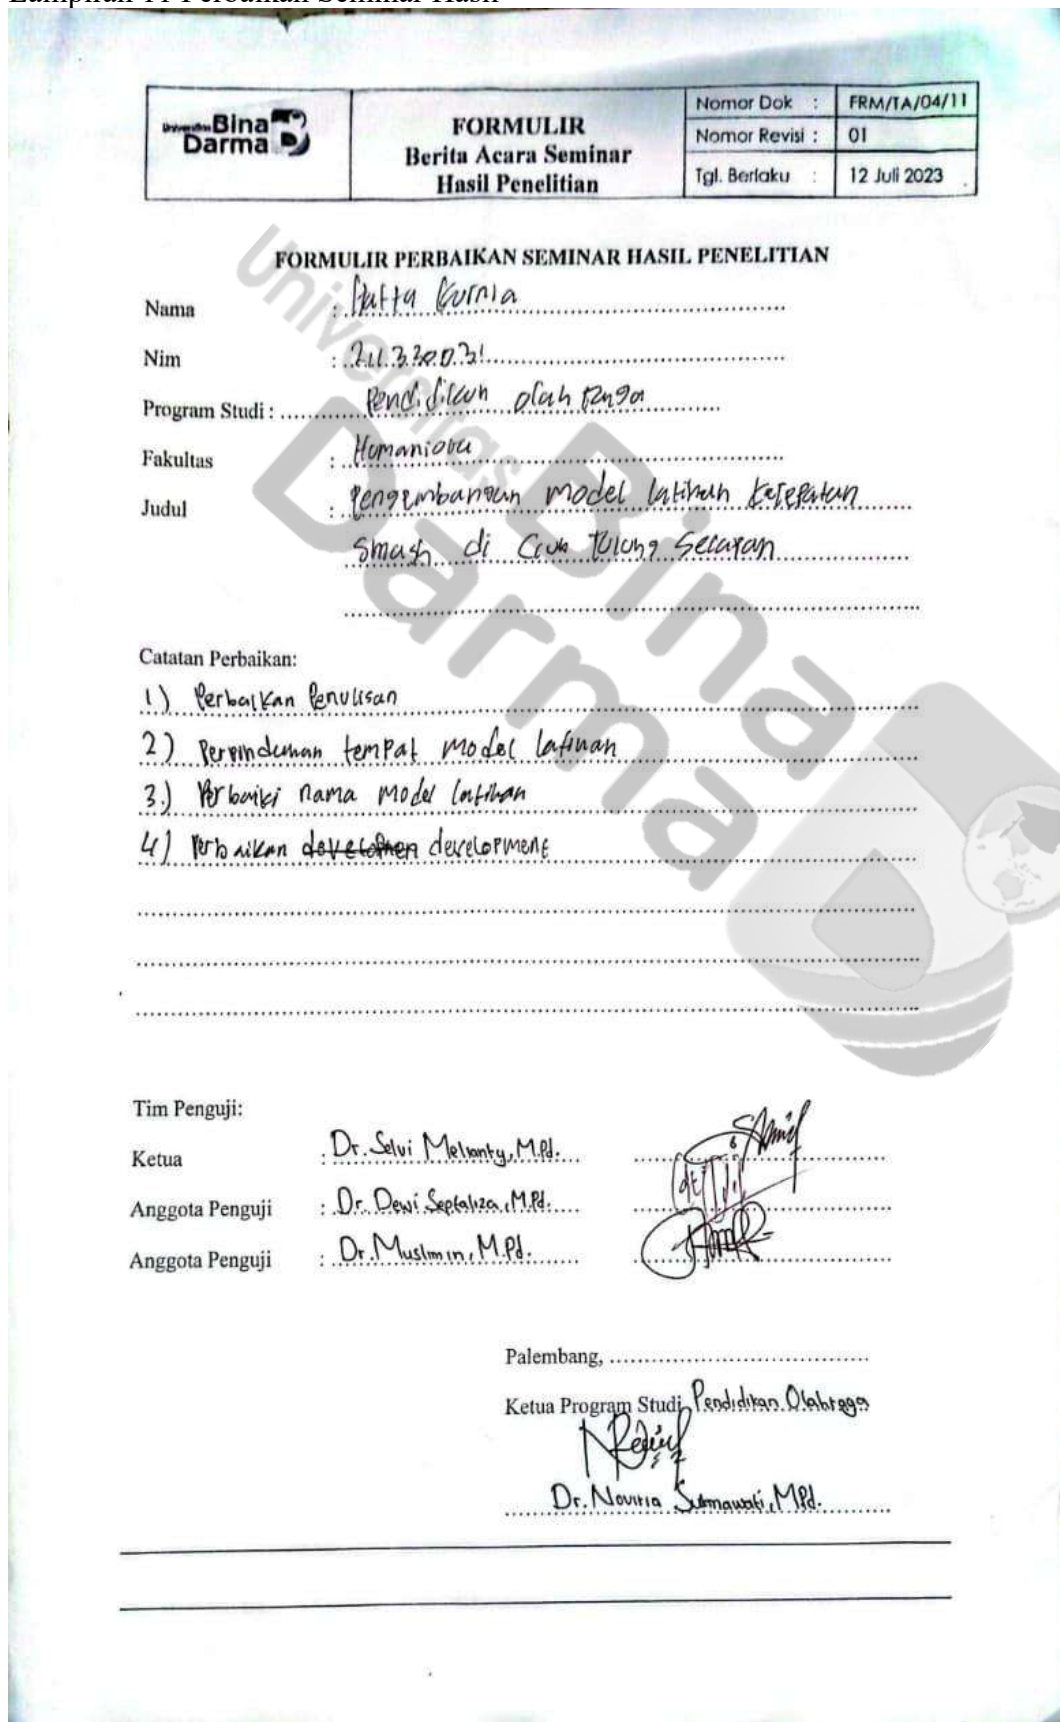 Lampiran 11 Perbaikan Seminar Hasil
Universitas Bina
Darma
FORMULIR
Berita Acara Seminar
Hasil Penelitian
Nomor Dok : FRM/TA/04/11
Nomor Revisi : 01
Tgl. Berlaku : 12 Juli 2023
FORMULIR PERBAIKAN SEMINAR HASIL PENELITIAN
Nama : Kurnia
Nim :
Program Studi : Pendidikan olah raga
Fakultas : Humaniora
Judul : Pengembangan model latihan ketepatan
Smash di Club Tulung Selapan
Catatan Perbaikan:
1) Perbaikan Penulisan
2) tempat model latihan
3.) Perbaiki nama model latihan
4) Perbaikan developmen development
Tim Penguji:
Ketua : Dr. Selvi Melianty, M.Pd.
Anggota Penguji : Dr. Dewi Septaliza, M.Pd.
Anggota Penguji : Dr. Muslimin, M.Pd.
Palembang,
Ketua Program Studi Pendidikan Olahraga
Dr. Noviria Sukmawati, M.Pd.
Universitas
Bina
Darma